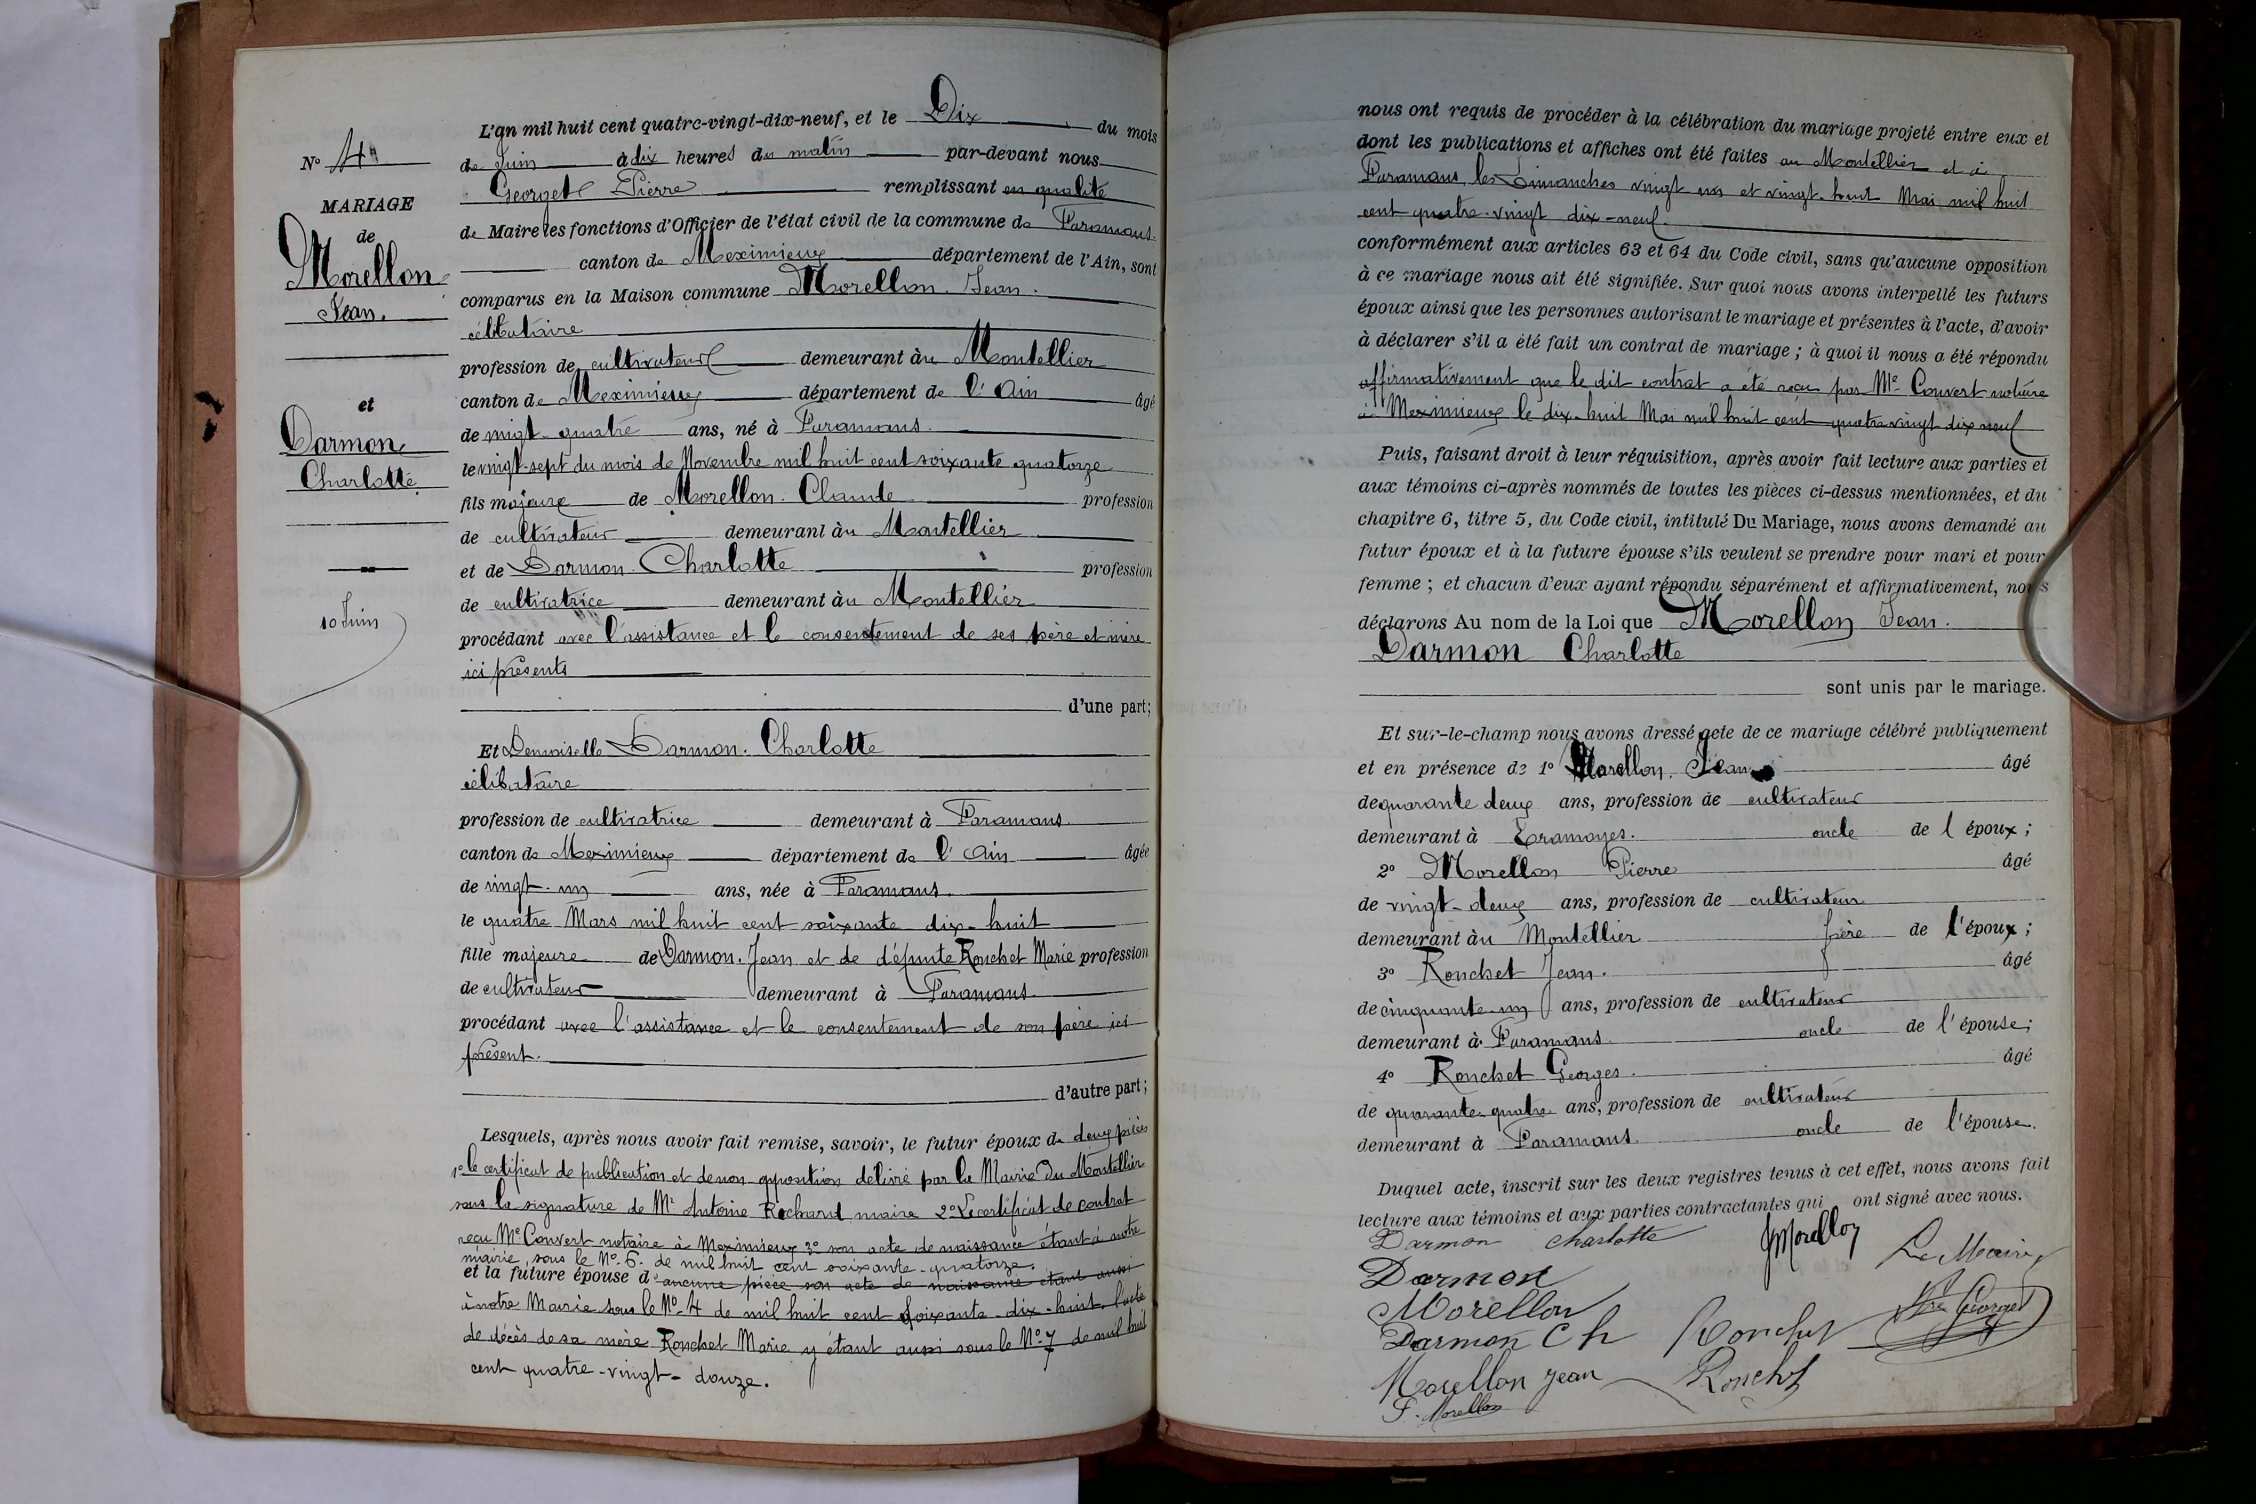 N° 4
MARIAGE
de
Morellon
Jean.
et
Darmon
Charlotte
10 Juin
L'an mil huit cent quatre-vingt-dix-neuf, et le Dix du mois
de Juin à dix heures du matin par-devant nous
Georget Pierre remplissant en qualité
de Maire les fonctions d'Officier de l'état civil de la commune de Faramans
canton de Meximieux département de l'Ain, sont
comparus en la Maison commune Morellon Jean.
célibataire
profession de cultivateur demeurant àu Montellier
canton de Meximieux département de l'Ain âgé
de vingt-quatre ans, né à Faramans
le vingt-sept du mois de Novembre mil huit cent soixante quatorze
fils majeur de Morellon Claude profession
de cultivateur demeurant àu Montellier
et de Darmon Charlotte profession
de cultivatrice demeurant àu Montellier
procédant avec l'assistance et le consentement de ses père et mère
ici présents
d'une part;
Et Demoiselle Darmon. Charlotte
célibataire
profession de cultivatrice demeurant à Faramans
canton de Meximieux département de l'Ain âgée
de vingt-un ans, née à Faramans
le quatre Mars mil huit cent soixante dix-huit
fille majeure de Darmon. Jean et de défunte Ronchet Marie profession
de cultivateur demeurant à Faramans
procédant avec l'assistance et le consentement de son père ici
présent.
d'autre part;
Lesquels, après nous avoir fait remise, savoir, le futur époux de deux pièces
1° le certificat de publication et de non opposition délivré par la Mairie du Montellier
sous la signature de Mr Antoine Richard maire 2° Le certificat de contrat
reçu Me Convert notaire à Meximieux 3° son acte de naissance étant à notre
mairie, sous le N° 6. de mil huit cent soixante-quatorze.
et la future épouse d'aucune pièce son acte de naissance étant aussi
à notre Mairie sous le N° 4 de mil huit cent soixante-dix-huit, l'acte
de décès de sa mère Ronchet Marie y étant aussi sous le N° 7 de mil huit
cent quatre-vingt-douze.
nous ont requis de procéder à la célébration du mariage projeté entre eux et
dont les publications et affiches ont été faites au Montellier et à
Faramans les Dimanches vingt un et vingt huit Mai mil huit
cent quatre-vingt dix-neuf
conformément aux articles 63 et 64 du Code civil, sans qu'aucune opposition
à ce mariage nous ait été signifiée. Sur quoi nous avons interpellé les futurs
époux ainsi que les personnes autorisant le mariage et présentes à l'acte, d'avoir
à déclarer s'il a été fait un contrat de mariage ; à quoi il nous a été répondu
affirmativement que le dit contrat a été reçu par Me Convert notaire
à Meximieux le dix-huit Mai mil huit cent quatre vingt dix neuf
Puis, faisant droit à leur réquisition, après avoir fait lecture aux parties et
aux témoins ci-après nommés de toutes les pièces ci-dessus mentionnées, et du
chapitre 6, titre 5, du Code civil, intitulé Du Mariage, nous avons demandé au
futur époux et à la future épouse s'ils veulent se prendre pour mari et pour
femme ; et chacun d'eux ayant répondu séparément et affirmativement, nous
déclarons Au nom de la Loi que Morellon Jean.
Darmon Charlotte
sont unis par le mariage.
Et sur-le-champ nous avons dressé acte de ce mariage célébré publiquement
et en présence de 1° Morellon. Jean âgé
de quarante deux ans, profession de cultivateur
demeurant à Tramoyes. oncle de l'époux ;
2° Morellon Pierre âgé
de vingt-deux ans, profession de cultivateur
demeurant àu Montellier frère de l'époux ;
3° Ronchet Jean. âgé
de cinquante-un ans, profession de cultivateur
demeurant à Faramans oncle de l'épouse;
4° Ronchet Georges. âgé
de quarante-quatre ans, profession de cultivateur
demeurant à Faramans oncle de l'épouse.
Duquel acte, inscrit sur les deux registres tenus à cet effet, nous avons fait
lecture aux témoins et aux parties contractantes qui ont signé avec nous.
Darmon charlotte JMorellon Le Maire
Darmon
Morellon Georget
Darmon Ch Ronchet
Morellon Jean Ronchet
P. Morellon